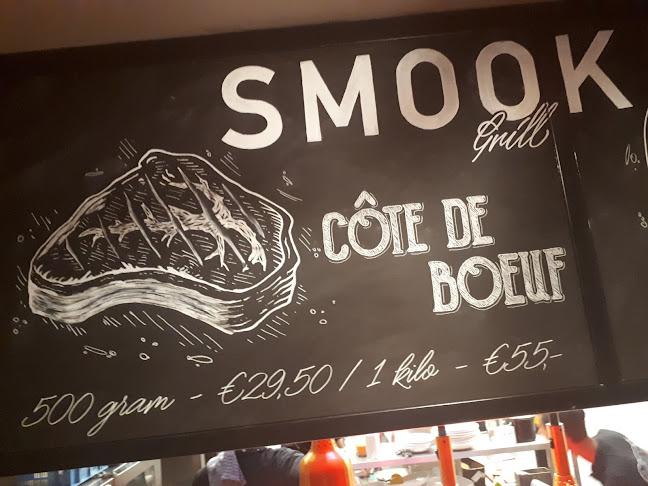 SMOOK
Grill
CÔTE DE
BOEUF
500 gram - €29,50 / 1 kilo - €55,-